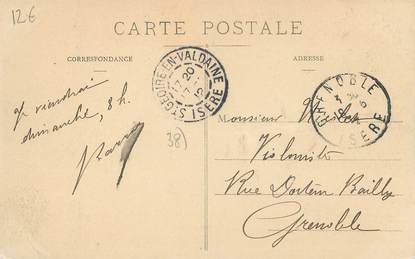 12€
CARTE POSTALE
CORRESPONDANCE
ADRESSE
ST GEOIRE-EN-VALDAINE
17 20
ISÈRE
GRENOBLE
ISERE
Je viendrai
dimanche, 8 h.
38)
Monsieur
Violoniste
Rue Docteur Bailly
Grenoble